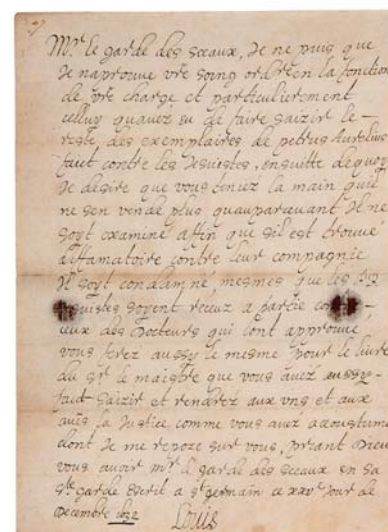 Mr. le garde des sceaux, Je ne puis que
Je naprouue vre soing ordre en la fonction
de vre charge et particulierement
celluy quauez eu de faire saizir le
reste, des exemplaires de petrus Aurelius
faict contre les Jesuistes, ensuitte dequoy
Je desire que vous teniez la main quil
ne sen vende plus quauparauant Il ne
soyt examiné affin que sil est trouué
diffamatoire contre leur compagnie
Il soyt condamné, mesmes que les PP
Jesuistes soyent receuz a partie
ceux des docteurs qui lont approuué,
vous ferez aussy le mesme pour le liure
du Sr. le maistre que vous auez aussy
faict saizir et rendrez aux vns et aux
aues la Justice comme vous auez accoustumé
dont Je me repoze sur vous, priant Dieu
vous auoir mr. le garde des sceaux en sa
ste garde Escrit a st germain ce xxve Jour de
Decembre 1632
Louis